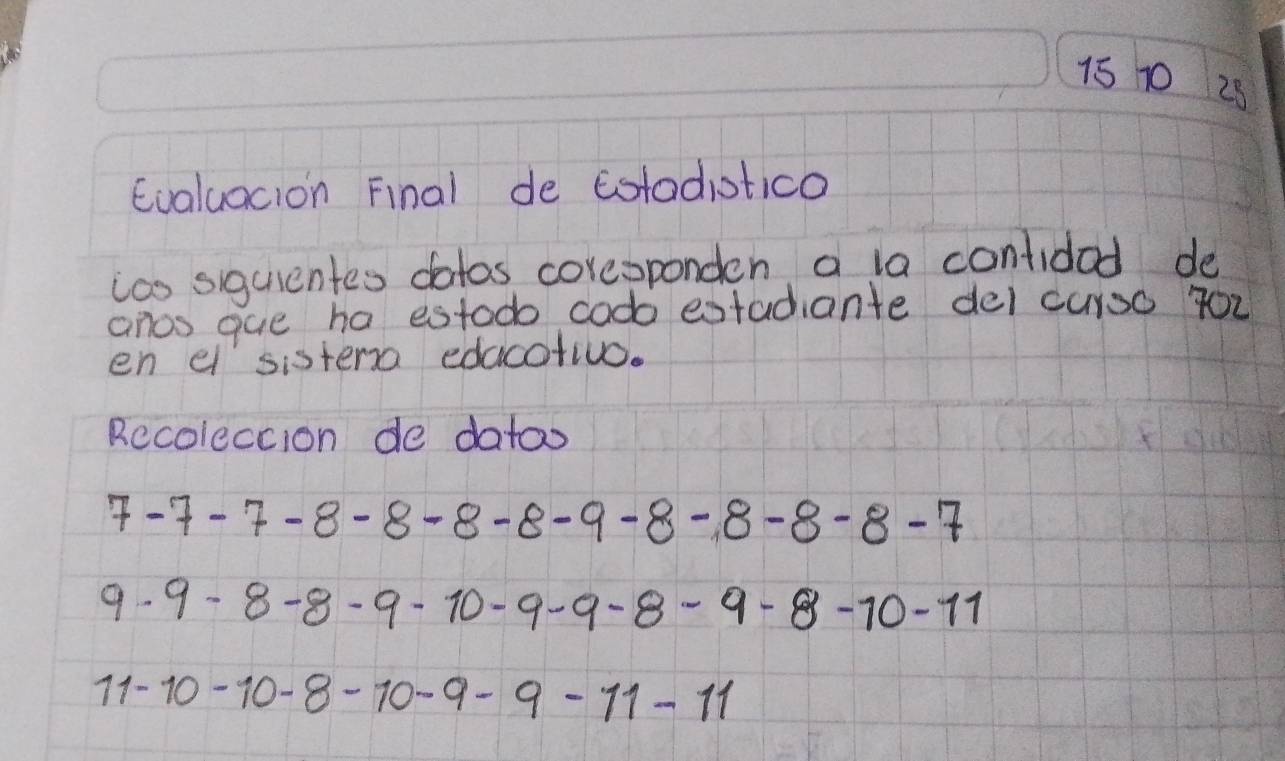 15 10 25
Evaluación Final de Estadistica
Los siguientes datos coresponden a la cantidad de
años que ha estado cada estudiante del curso 702
en el sistema educativo.
Recoleccion de datos
7-7-7-8-8-8-8-9-8-8-8-8-7
9-9-8-8-9-10-9-9-8-9-8-10-11
11-10-10-8-10-9-9-11-11